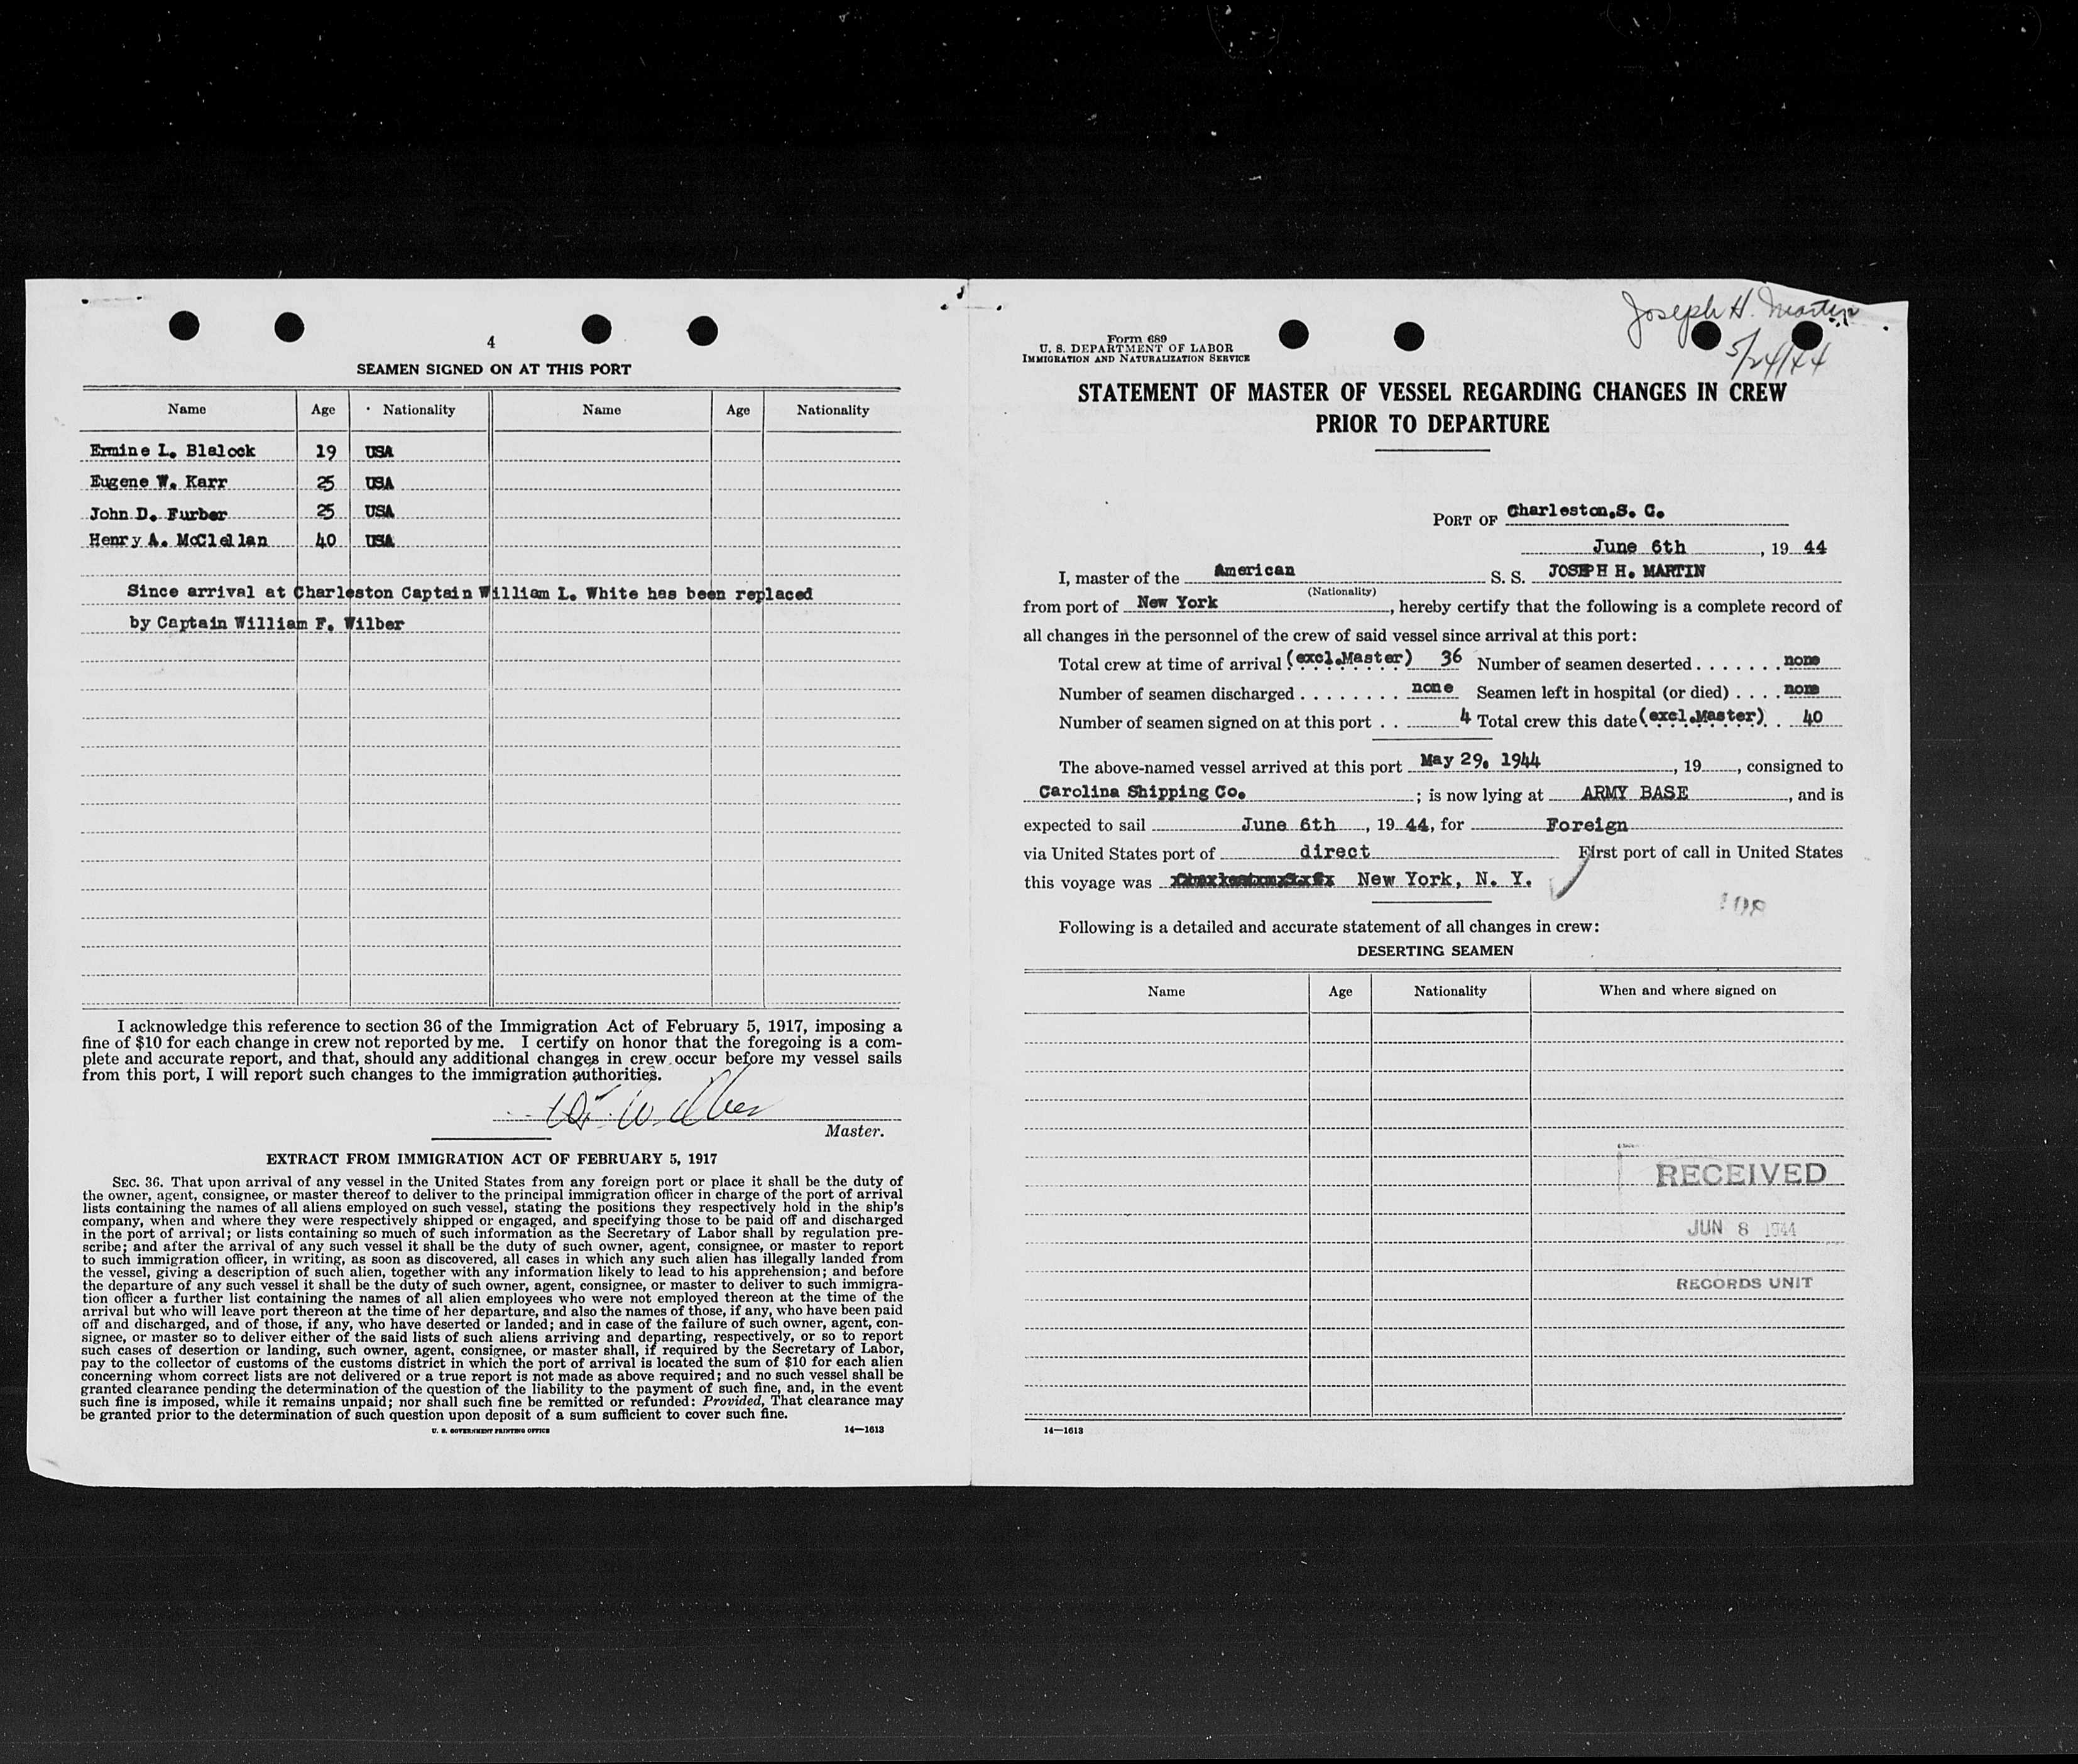 4
SEAMEN SIGNED ON AT THIS PORT
Name Age Nationality Name Age Nationality
Ermine L. Blalock 19 USA
Eugene W. Karr 25 USA
John D. Furber 25 USA
Henry A. McClellan 40 USA
Since arrival at Charleston Captain William L. White has been replaced
by Captain William F. Wilber
I acknowledge this reference to section 36 of the Immigration Act of February 5, 1917, imposing a
fine of $10 for each change in crew not reported by me. I certify on honor that the foregoing is a com-
plete and accurate report, and that, should any additional changes in crew occur before my vessel sails
from this port, I will report such changes to the immigration authorities.
W.F. Wilber
Master.
EXTRACT FROM IMMIGRATION ACT OF FEBRUARY 5, 1917
SEC. 36. That upon arrival of any vessel in the United States from any foreign port or place it shall be the duty of
the owner, agent, consignee, or master thereof to deliver to the principal immigration officer in charge of the port of arrival
lists containing the names of all aliens employed on such vessel, stating the positions they respectively hold in the ship's
company, when and where they were respectively shipped or engaged, and specifying those to be paid off and discharged
in the port of arrival; or lists containing so much of such information as the Secretary of Labor shall by regulation pre-
scribe; and after the arrival of any such vessel it shall be the duty of such owner, agent, consignee, or master to report
to such immigration officer, in writing, as soon as discovered, all cases in which any such alien has illegally landed from
the vessel, giving a description of such alien, together with any information likely to lead to his apprehension; and before
the departure of any such vessel it shall be the duty of such owner, agent, consignee, or master to deliver to such immigra-
tion officer a further list containing the names of all alien employees who were not employed thereon at the time of the
arrival but who will leave port thereon at the time of her departure, and also the names of those, if any, who have been paid
off and discharged, and of those, if any, who have deserted or landed; and in case of the failure of such owner, agent, con-
signee, or master so to deliver either of the said lists of such aliens arriving and departing, respectively, or so to report
such cases of desertion or landing, such owner, agent, consignee, or master shall, if required by the Secretary of Labor,
pay to the collector of customs of the customs district in which the port of arrival is located the sum of $10 for each alien
concerning whom correct lists are not delivered or a true report is not made as above required; and no such vessel shall be
granted clearance pending the determination of the question of the liability to the payment of such fine, and, in the event
such fine is imposed, while it remains unpaid; nor shall such fine be remitted or refunded: Provided, That clearance may
be granted prior to the determination of such question upon deposit of a sum sufficient to cover such fine.
U. S. GOVERNMENT PRINTING OFFICE 14—1613
Joseph H. Martin
5/24/44
Form 689
U. S. DEPARTMENT OF LABOR
IMMIGRATION AND NATURALIZATION SERVICE
STATEMENT OF MASTER OF VESSEL REGARDING CHANGES IN CREW
PRIOR TO DEPARTURE
PORT OF Charleston,S. C.
June 6th, 19 44
I, master of the American S. S. JOSEPH H. MARTIN
(Nationality)
from port of New York, hereby certify that the following is a complete record of
all changes in the personnel of the crew of said vessel since arrival at this port:
Total crew at time of arrival (excl.Master) 36 Number of seamen deserted ....... none
Number of seamen discharged ........ none Seamen left in hospital (or died) .... none
Number of seamen signed on at this port .. 4 Total crew this date (excl.Master). . 40
The above-named vessel arrived at this port May 29, 1944, 19, consigned to
Carolina Shipping Co. ; is now lying at ARMY BASE, and is
expected to sail June 6th, 19 44, for Foreign
via United States port of direct First port of call in United States
this voyage was New York, N. Y.
Following is a detailed and accurate statement of all changes in crew:
DESERTING SEAMEN
Name Age Nationality When and where signed on
RECEIVED
JUN 8 1944
RECORDS UNIT
14—1613